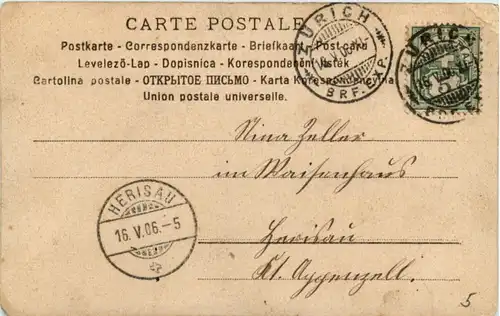 CARTE POSTALE
Postkarte - Correspondenzkarte - Briefkaart - Post card
Levelező-Lap - Dopisnica - Korespondenční lístek
Cartolina postale - ОТКРЫТОЕ ПИСЬМО - Karta Korespondencyjna
Union postale universelle.
ZÜRICH
BRF. EXP.
ZÜRICH
Nina Zeller
im Waisenhaus
Herisau
Kt. Appenzell.
HERISAU
16. V. 06. – 5
5